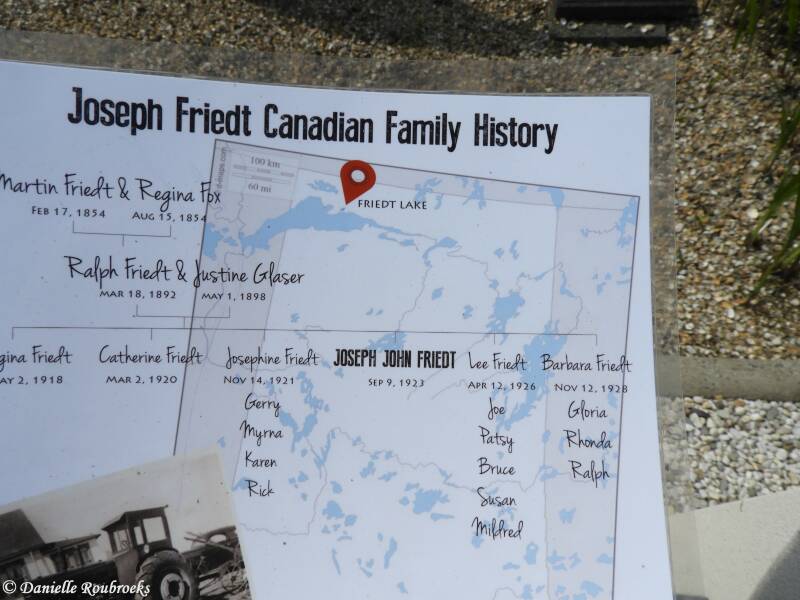 Joseph Friedt Canadian Family History
100 km
60 mi
d-maps.com
FRIEDT LAKE
Martin Friedt & Regina Fox
FEB 17, 1854 AUG 15, 1854
Ralph Friedt & Justine Glaser
MAR 18, 1892 MAY 1, 1898
gina Friedt Catherine Friedt Josephine Friedt JOSEPH JOHN FRIEDT Lee Friedt Barbara Friedt
AY 2, 1918 MAR 2, 1920 NOV 14, 1921 SEP 9, 1923 APR 12, 1926 NOV 12, 1928
Gerry Joe Gloria
Myrna Patsy Rhonda
Karen Bruce Ralph
Rick Susan
Mildred
© Danielle Roubroeks